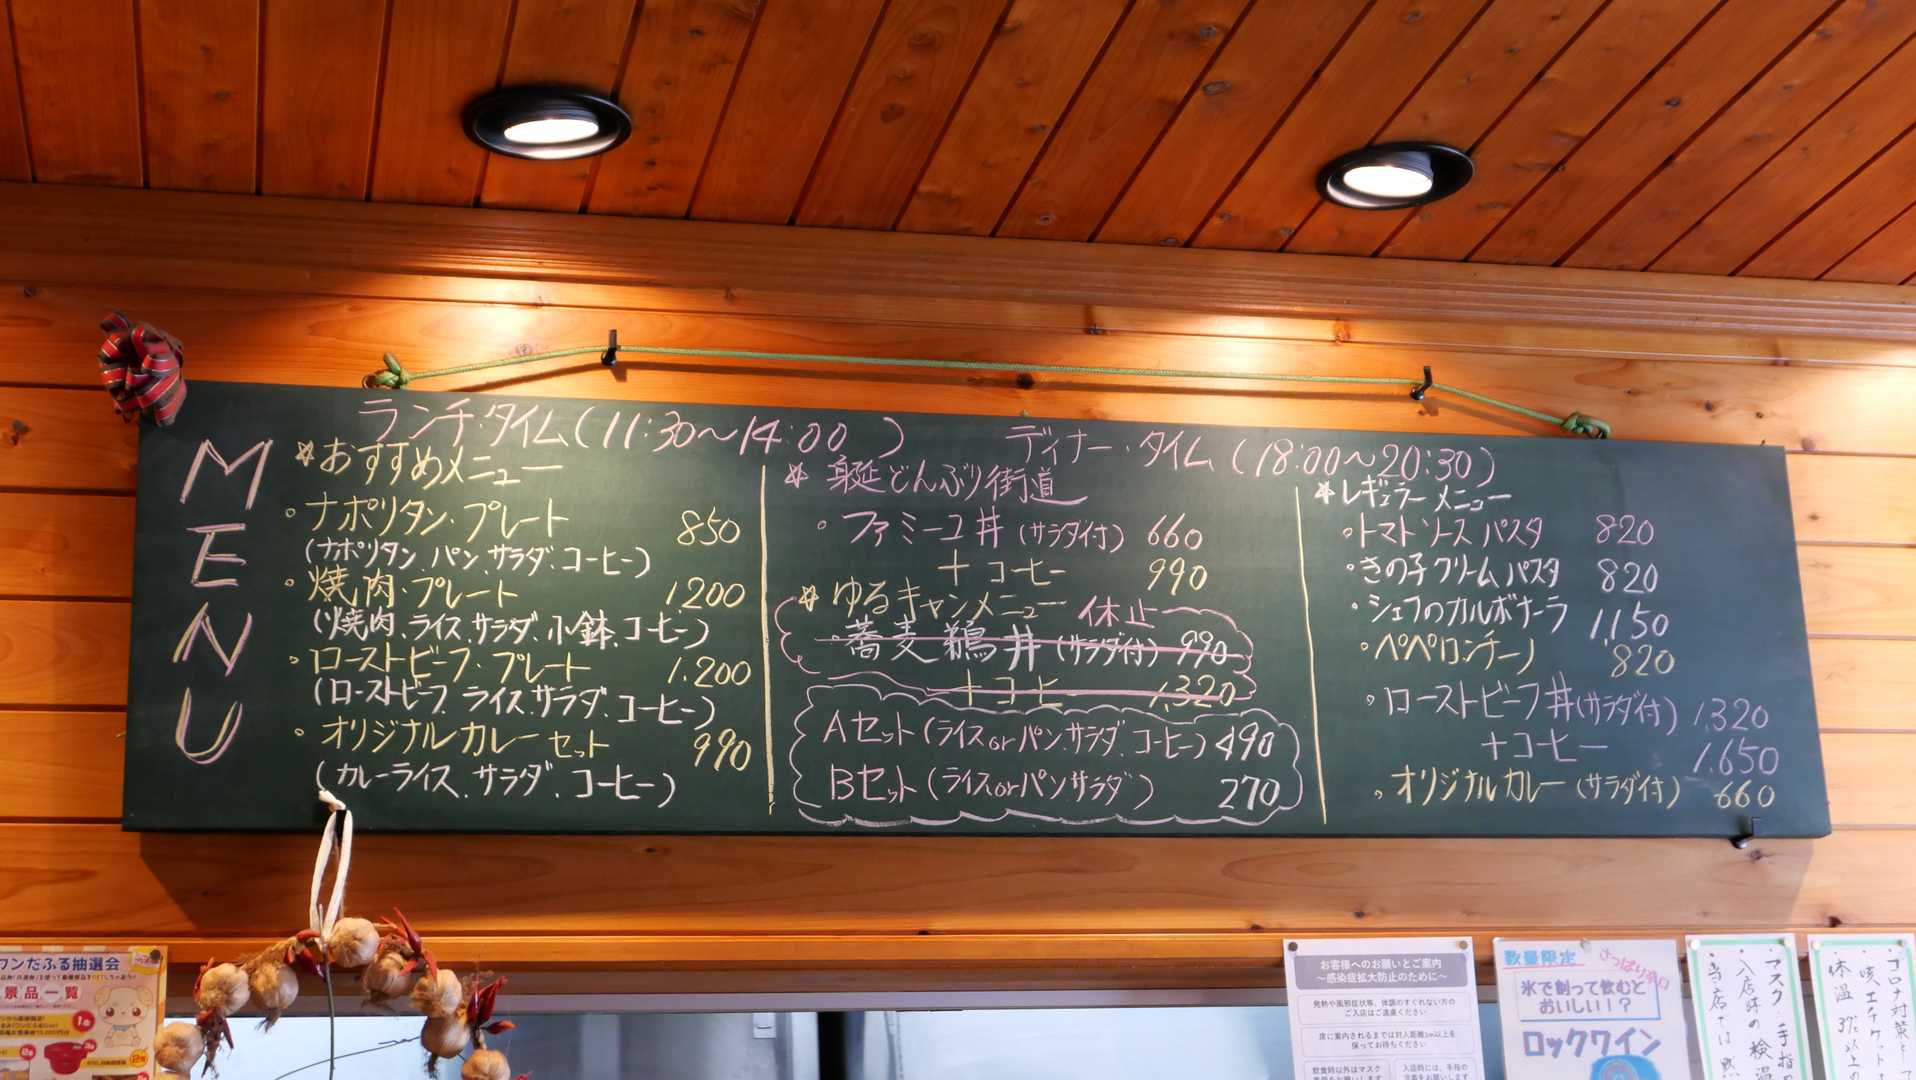 MENU
ランチ・タイム(11:30〜14:00 )
ディナー・タイム(18:00〜20:30)
☆おすすめメニュー
・ナポリタン・プレート 850
(ナポリタン、パン、サラダ、コーヒー)
・焼肉・プレート 1,200
(焼肉、ライス、サラダ、小鉢、コーヒー)
・ローストビーフ・プレート 1,200
(ローストビーフ、ライス、サラダ、コーヒー)
・オリジナルカレーセット 990
(カレーライス、サラダ、コーヒー)
☆身延どんぶり街道
・ファミーユ丼(サラダ付) 660
+コーヒー 990
☆ゆるキャンメニュー 休止
・蕎麦鶏丼(サラダ付) 990
+コーヒ 1,320
Aセット(ライスorパン、サラダ、コーヒー)490
Bセット(ライスorパンサラダ) 270
☆レギュラーメニュー
・トマトソースパスタ 820
・きの子クリームパスタ 820
・シェフのカルボナーラ 1,150
・ペペロンチーノ 820
・ローストビーフ丼(サラダ付) 1,320
+コーヒー 1,650
・オリジナルカレー(サラダ付) 660
ワンだふる抽選会
景品一覧
お客様へのお願いとご案内
〜感染症拡大防止のために〜
発熱や風邪症状等、体調のすぐれない方の
ご入店はご遠慮ください
席に案内されるまでは対人距離2m以上を
保ってお待ちください
飲食時以外はマスク
入店時には、手指の
数量限定
さっぱり辛口
氷で割って飲むと
おいしい!?
ロックワイン
・マスク・手指
・入店時の検温
・当店では
コロナ対策
・咳エチケット
体温37℃以上の